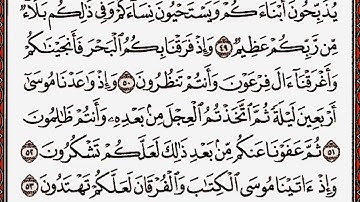 يُذَبِّحُونَ أَبْنَآءَكُمْ وَيَسْتَحْيُونَ نِسَآءَكُمْ وَفِى ذَٰلِكُم بَلَآءٌ
مِّن رَّبِّكُمْ عَظِيمٌ ٤٩ وَإِذْ فَرَقْنَا بِكُمُ ٱلْبَحْرَ فَأَنجَيْنَٰكُمْ
وَأَغْرَقْنَآ ءَالَ فِرْعَوْنَ وَأَنتُمْ تَنظُرُونَ ٥٠ وَإِذْ وَٰعَدْنَا مُوسَىٰٓ
أَرْبَعِينَ لَيْلَةً ثُمَّ ٱتَّخَذْتُمُ ٱلْعِجْلَ مِنۢ بَعْدِهِۦ وَأَنتُمْ ظَٰلِمُونَ
٥١ ثُمَّ عَفَوْنَا عَنكُم مِّنۢ بَعْدِ ذَٰلِكَ لَعَلَّكُمْ تَشْكُرُونَ ٥٢
وَإِذْ ءَاتَيْنَا مُوسَى ٱلْكِتَٰبَ وَٱلْفُرْقَانَ لَعَلَّكُمْ تَهْتَدُونَ ٥٣